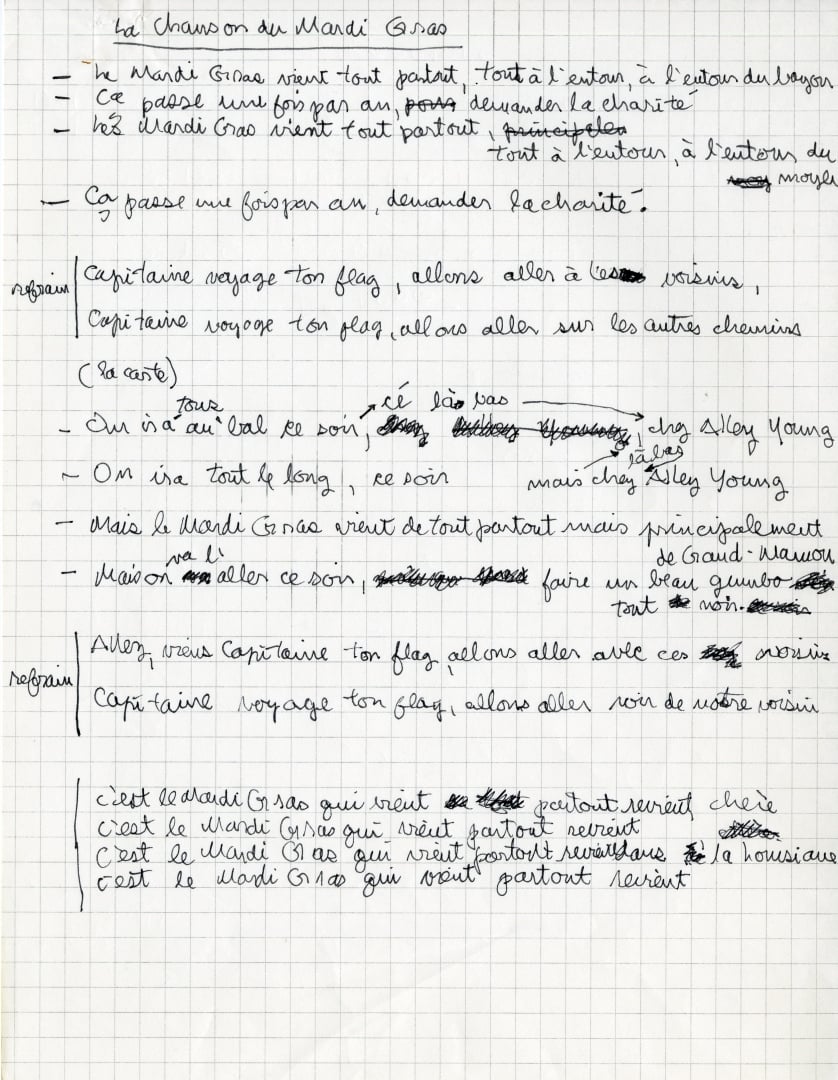 La Chanson du Mardi Gras
– Le Mardi Gras vient tout partout, tout à l'entour, à l'entour du bayou
– Ça passe une fois par an, pour demander la charité
– Les Mardi Gras vient tout partout, principalem
tout à l'entour, à l'entour du
moyeu
– Ça passe une fois par an, demander la charité.
refrain
Capitaine voyage ton flag, allons aller à l'es voisins,
Capitaine voyage ton flag, allons aller sur les autres chemins
(la carte)
tous cé là bas
– On ira au bal ce soir, chez Alley Young
là bas
– On ira tout le long, ce soir mais chez Asley Young
– Mais le Mardi Gras vient de tout partout mais principalement
de Grand-Mamou
va l'
– Mais on aller ce soir, faire un beau gumbo
tout noir.
refrain
Allez, viens Capitaine ton flag, allons aller avec ces voisins
Capitaine voyage ton flag, allons aller voir de notre voisin
c'est le Mardi Gras qui vient partout revient chère
c'est le Mardi Gras qui vient partout revient
C'est le Mardi Gras qui vient partout revient dans la Louisiane
c'est le Mardi Gras qui vient partout revient